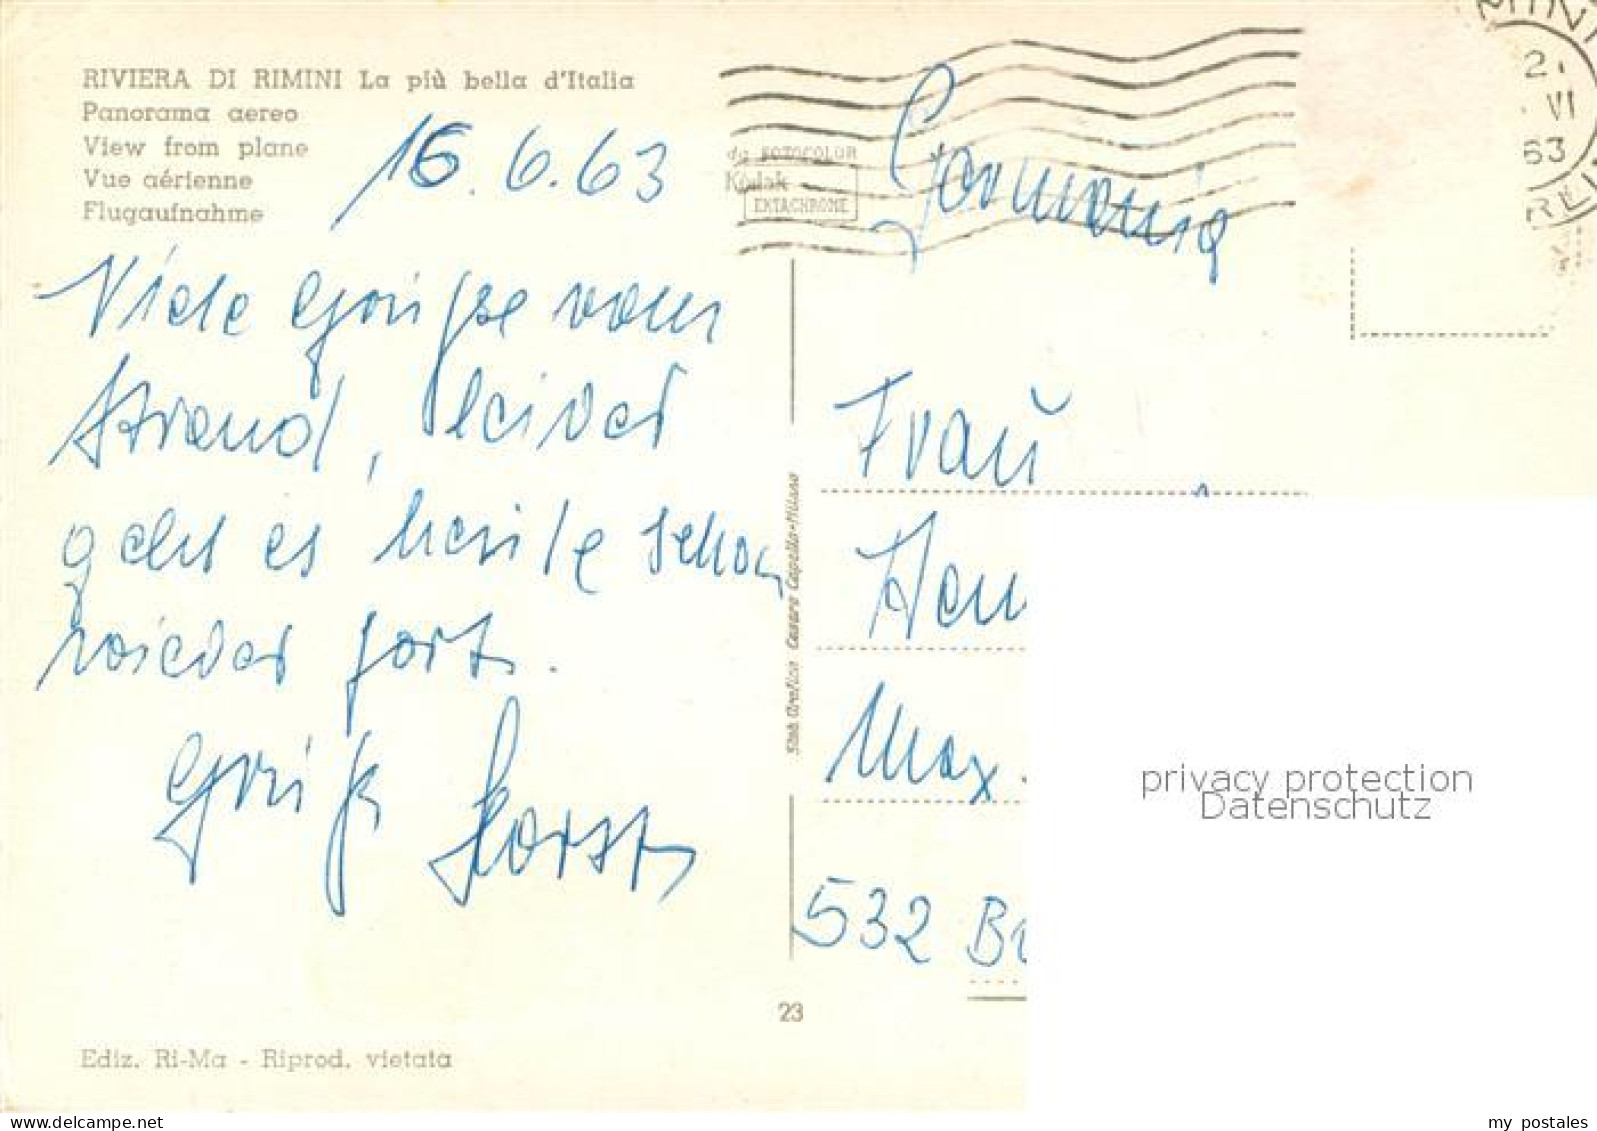 RIVIERA DI RIMINI La più bella d'Italia
Panorama aereo
View from plane
Vue aérienne
Flugaufnahme
16.6.63
Viele Grüße vom
Strand, leider
geht es heute schon
wieder fort.
Gruß Horst
da FOTOCOLOR
Kodak
EKTACHROME
2.
VI
63
Germania
Frau
Max.
532
Stab. Grafico Cesare Capello-Milano
23
Ediz. Ri-Ma - Riprod. vietata
privacy protection
Datenschutz
my postales